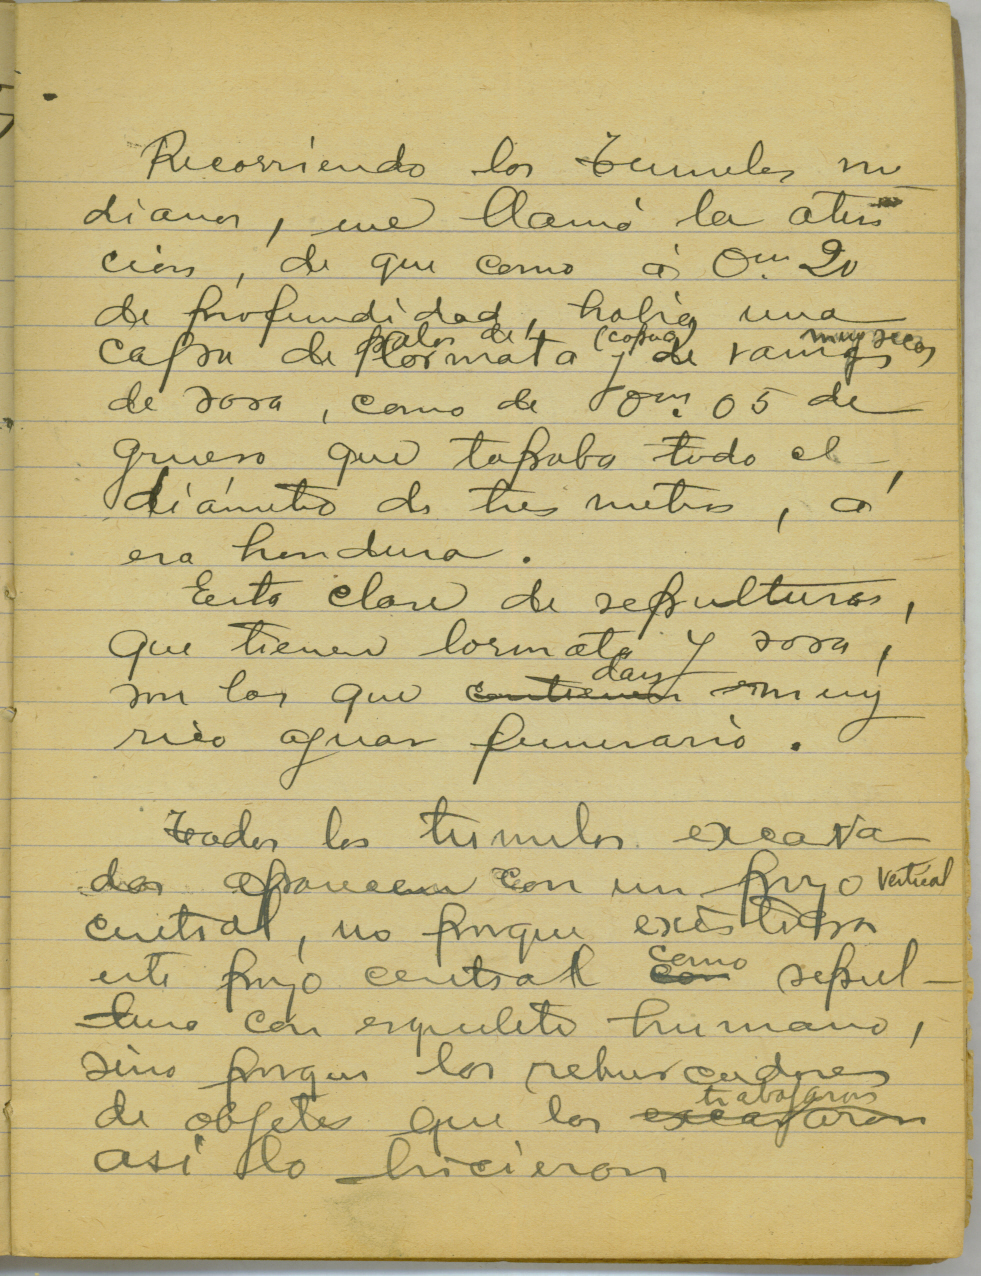 Recorriendo los túmulos in
dianos, me llamó la aten
ción, de que como á 0m. 20
de profundidad, había una
palos de (copua) muy secos
capa de lormata y de ramas
de rosa, como de 0m. 05 de
grueso que tapaba todo el
diámetro de tres metros, á
esa hondura.
Esta clase de sepulturas,
que tienen lormata y rosa,
dan
son las que contienen muy
rico ajuar funerario.
Todos los túmulos excava
dos aparecen con un pozo vertical
central, no porque existiera
como
este pozo central con sepul-
tura con esqueleto humano,
sino porque los rebuscadores
trabajaron
de objetos que los excavaron
así lo hicieron